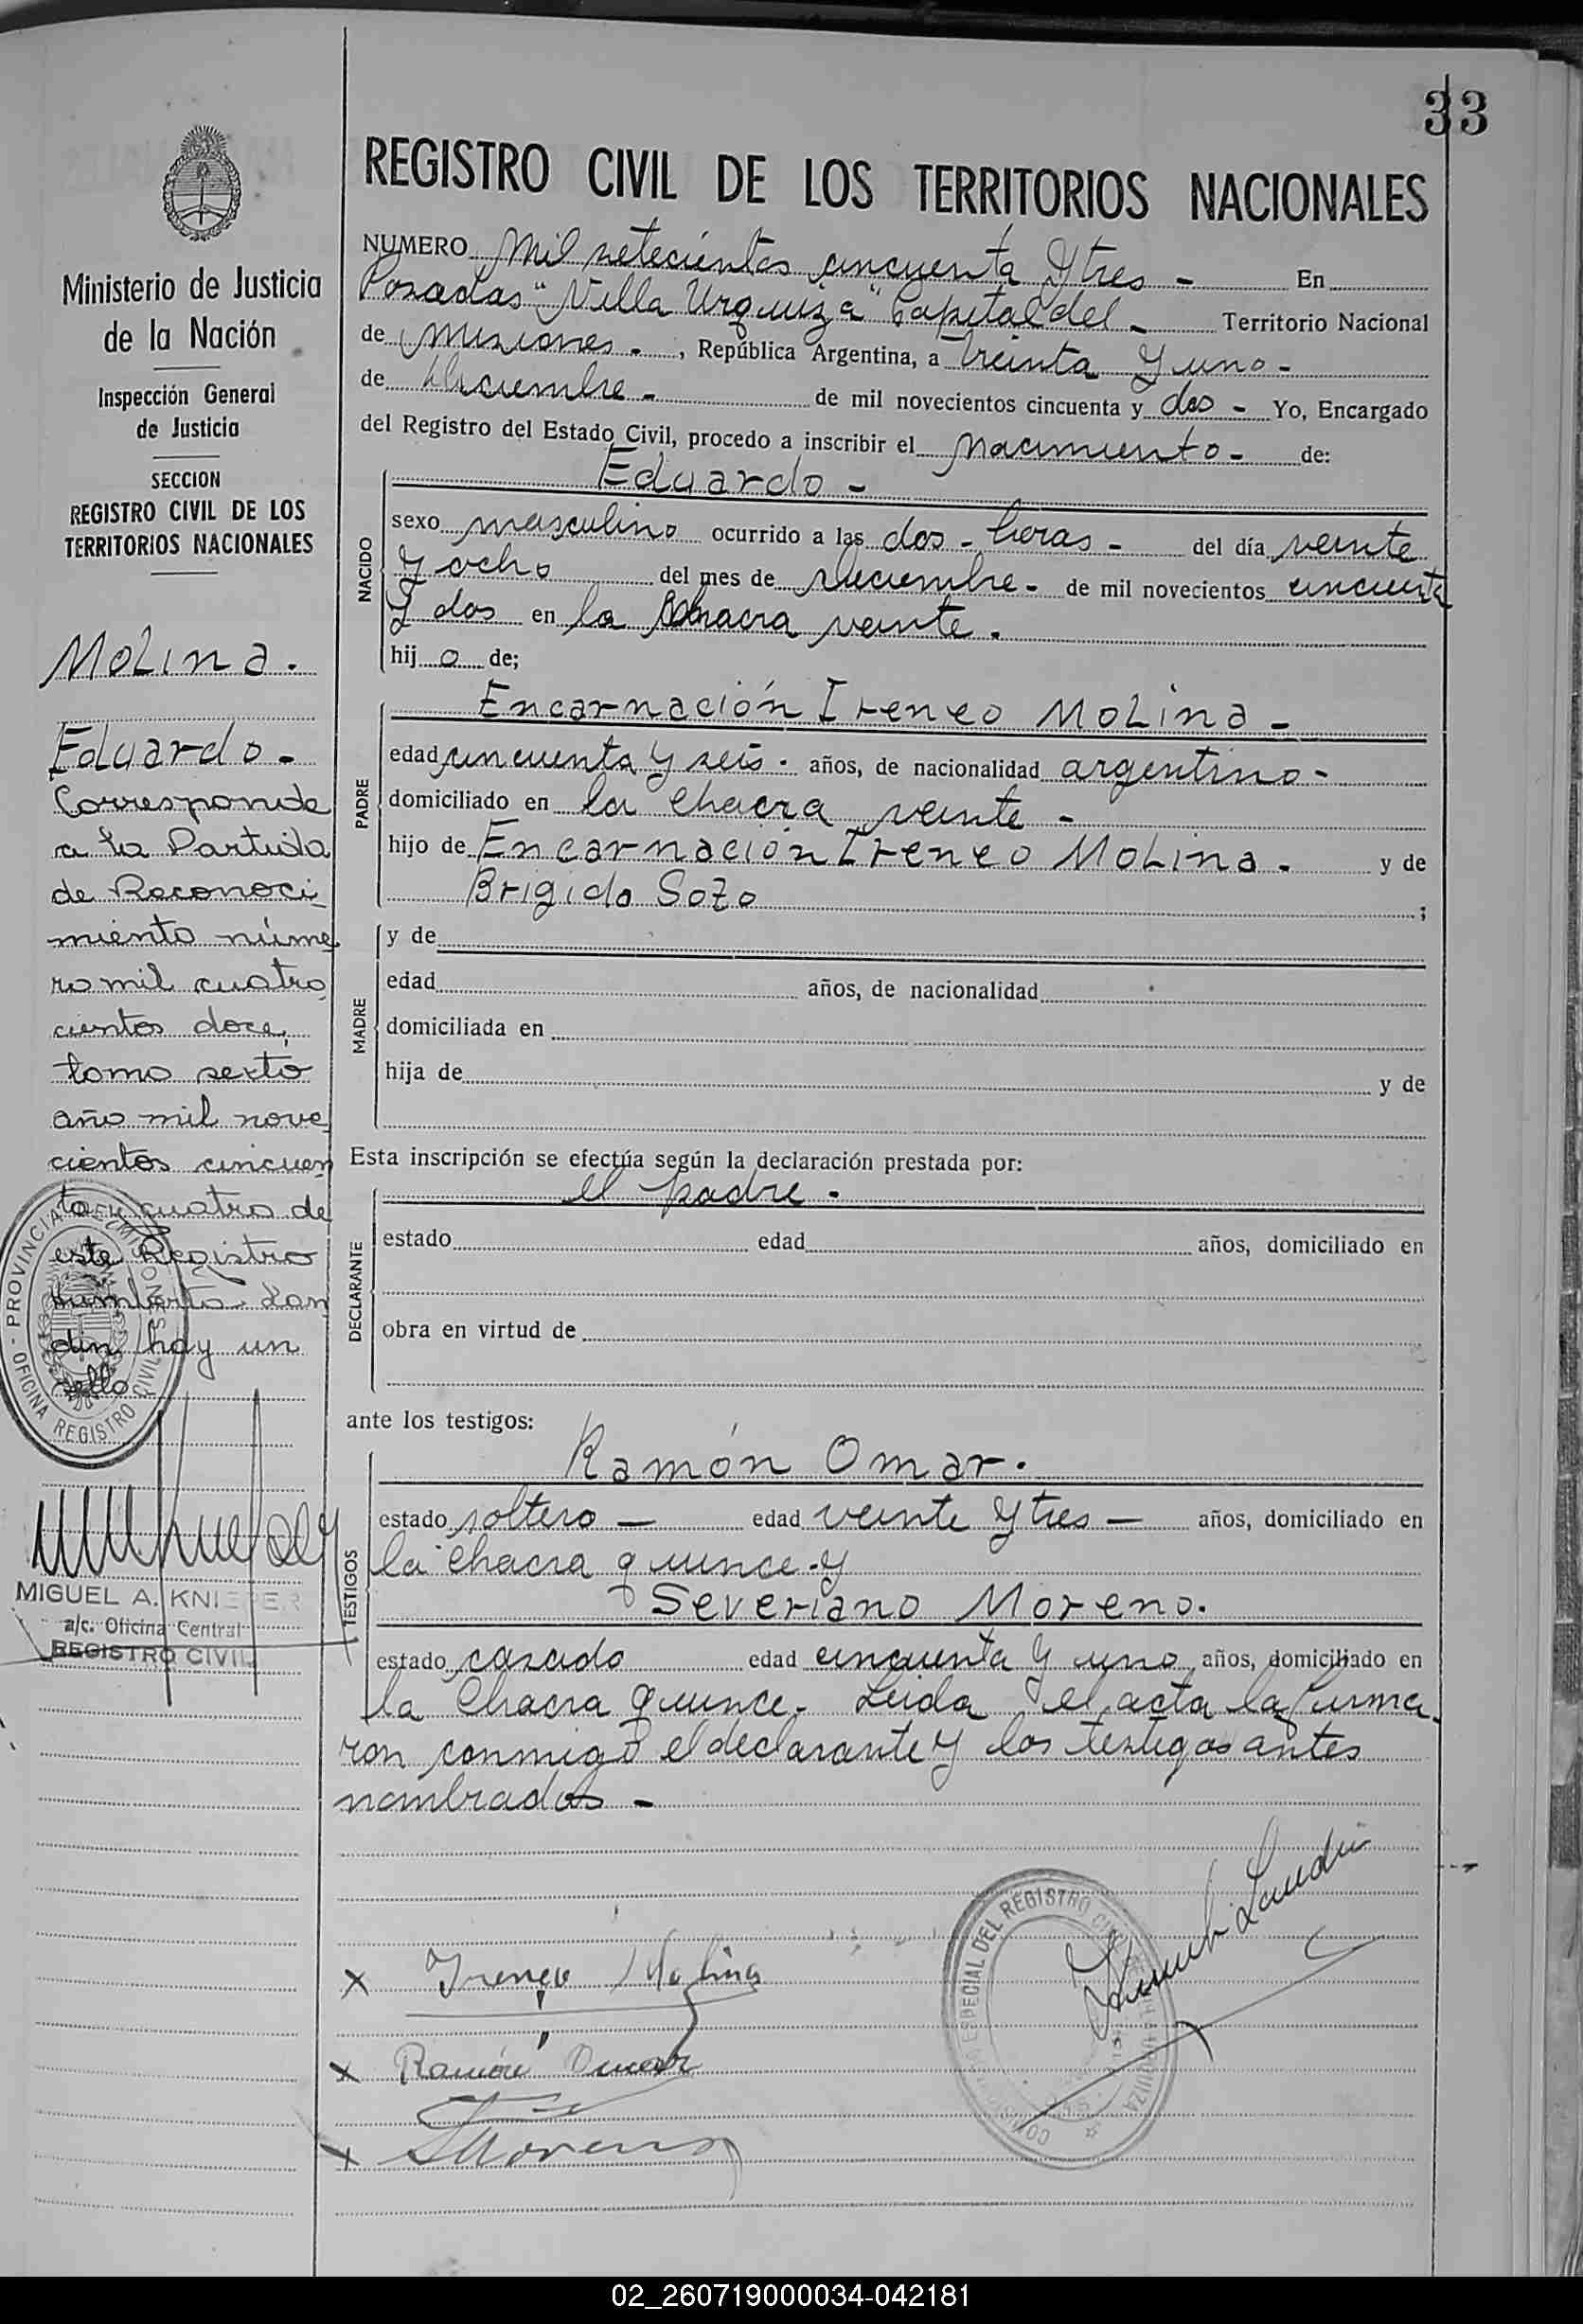 33
REGISTRO CIVIL DE LOS TERRITORIOS NACIONALES
NUMERO Mil setecientos cincuenta y tres - En
Posadas "Villa Urquiza" Capital del - Territorio Nacional
de Misiones - , República Argentina, a treinta y uno -
de diciembre - de mil novecientos cincuenta y dos - Yo, Encargado
del Registro del Estado Civil, procedo a inscribir el Nacimiento - de:
Eduardo -
NACIDO
sexo masculino ocurrido a las dos - horas - del día veinte
y ocho del mes de diciembre - de mil novecientos cincuenta
y dos en la chacra veinte.
hij o de;
PADRE
Encarnación Ireneo Molina -
edad cincuenta y seis - años, de nacionalidad argentino -
domiciliado en la chacra veinte -
hijo de Encarnación Ireneo Molina - y de
Brigida Sozo ;
MADRE
y de
edad años, de nacionalidad
domiciliada en
hija de y de
Esta inscripción se efectúa según la declaración prestada por:
DECLARANTE
el padre -
estado edad años, domiciliado en
obra en virtud de
ante los testigos:
TESTIGOS
Ramón Omar.
estado soltero - edad veinte y tres - años, domiciliado en
la chacra quince - y
Severiano Moreno.
estado casado edad cincuenta y uno años, domiciliado en
la chacra quince. Leida el acta la firma-
ron conmigo el declarante y los testigos antes
nombrados -
x Ireneo Molina
x Ramón Omar
x SMoreno
Humb Landin
ESPECIAL DEL REGISTRO CIVIL
URQUIZA
Ministerio de Justicia
de la Nación
Inspección General
de Justicia
SECCION
REGISTRO CIVIL DE LOS
TERRITORIOS NACIONALES
Molina.
Eduardo -
Corresponde
a la Partida
de Reconoci
miento núme
ro mil cuatro
cientos doce,
tomo sexto
año mil nove
cientos cincuen
ta y cuatro de
este Registro
Humberto Lan
din hay un
sello
- PROVINCIA DE MISIONES - OFICINA REGISTRO CIVIL
MIGUEL A. KNIEPER
a/c. Oficina Central
REGISTRO CIVIL
02_260719000034-042181